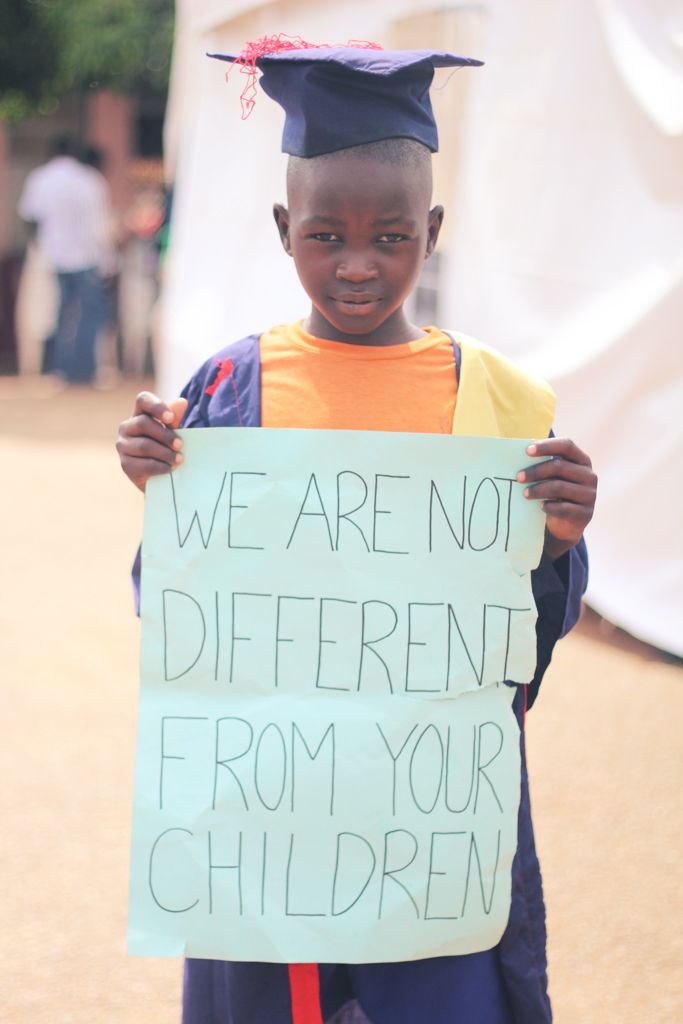 WE ARE NOT
DIFFERENT
FROM YOUR
CHILDREN